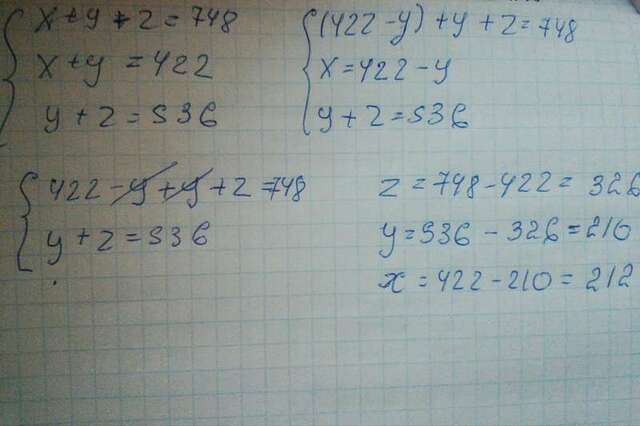 x + y + z = 748
x + y = 422
y + z = 536
(422 - y) + y + z = 748
x = 422 - y
y + z = 536
422 - y + y + z = 748
y + z = 536
z = 748 - 422 = 326
y = 536 - 326 = 210
x = 422 - 210 = 212